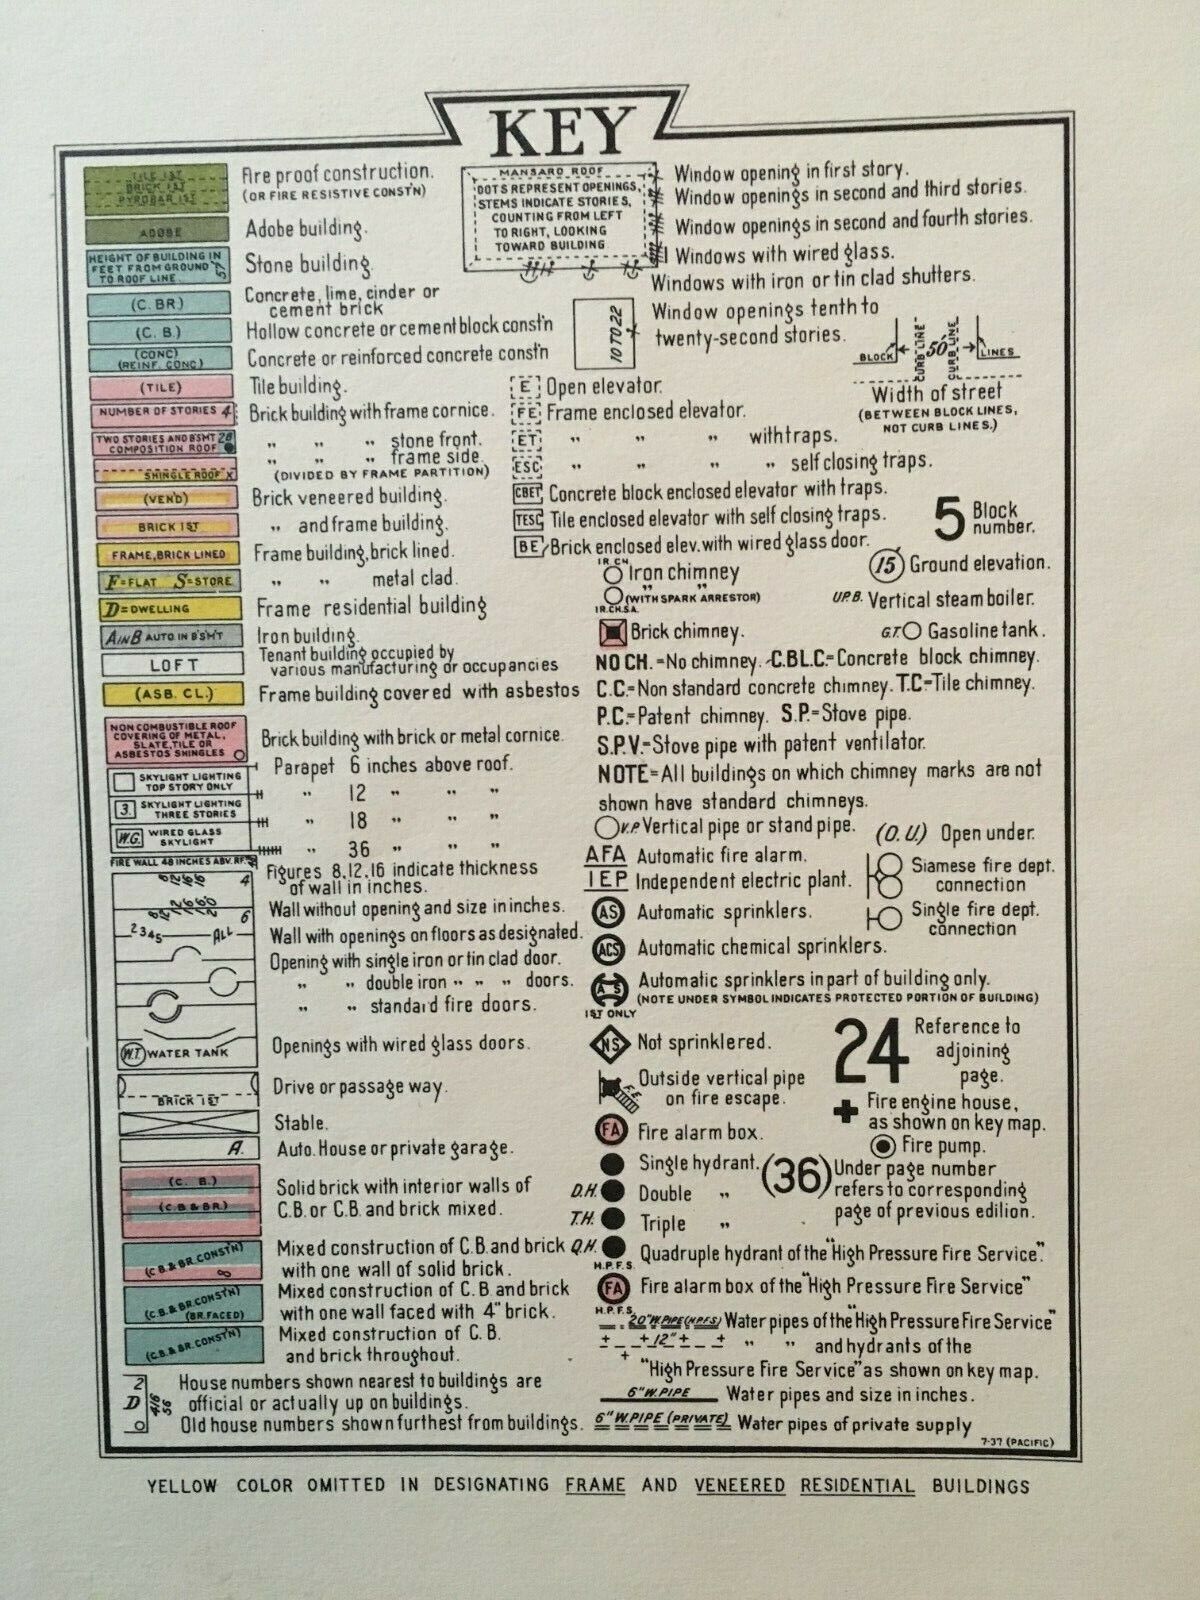 KEY
TILE 1ST
BRICK 1ST
PYROBAR 1ST
Fire proof construction.
(OR FIRE RESISTIVE CONST'N)
ADOBE
Adobe building.
HEIGHT OF BUILDING IN
FEET FROM GROUND
TO ROOF LINE.
Stone building
(C. BR.)
Concrete, lime, cinder or
cement brick
(C. B.)
Hollow concrete or cement block const'n
(CONC)
(REINF. CONC.)
Concrete or reinforced concrete const'n
(TILE)
Tile building.
NUMBER OF STORIES 4
Brick building with frame cornice.
TWO STORIES AND B'SMT 2B
COMPOSITION ROOF
" " " stone front.
" " " frame side.
(DIVIDED BY FRAME PARTITION)
SHINGLE ROOF X
(VEN'D)
Brick veneered building.
BRICK 1ST
" and frame building.
FRAME, BRICK LINED
Frame building, brick lined.
F=FLAT S=STORE
" " metal clad.
D=DWELLING
Frame residential building
A IN B AUTO IN B'SM'T
Iron building.
LOFT
Tenant building occupied by
various manufacturing or occupancies
(ASB. CL.)
Frame building covered with asbestos
NON COMBUSTIBLE ROOF
COVERING OF METAL,
SLATE, TILE OR
ASBESTOS SHINGLES
Brick building with brick or metal cornice.
SKYLIGHT LIGHTING
TOP STORY ONLY
Parapet 6 inches above roof.
" 12 " " "
3. SKYLIGHT LIGHTING
THREE STORIES
" 18 " " "
W.G. WIRED GLASS
SKYLIGHT
" 36 " " "
FIRE WALL 48 INCHES ABV. RF.
Figures 8,12,16 indicate thickness
of wall in inches.
4
Wall without opening and size in inches.
6
2345 ALL
Wall with openings on floors as designated.
Opening with single iron or tin clad door.
" " double iron " " " doors.
" " standard fire doors.
W.T. WATER TANK
Openings with wired glass doors.
BRICK 1ST
Drive or passage way.
Stable.
A.
Auto. House or private garage.
(C. B.)
(C.B.& BR.)
Solid brick with interior walls of
C.B. or C.B. and brick mixed.
(C.B.& BR. CONST'N)
8
Mixed construction of C.B. and brick
with one wall of solid brick.
(C.B.& BR. CONST'N)
(BR. FACED)
Mixed construction of C.B. and brick
with one wall faced with 4" brick.
(C.B.& BR. CONST'N)
Mixed construction of C.B.
and brick throughout.
2
D
House numbers shown nearest to buildings are
official or actually up on buildings.
Old house numbers shown furthest from buildings.
MANSARD ROOF
DOTS REPRESENT OPENINGS,
STEMS INDICATE STORIES,
COUNTING FROM LEFT
TO RIGHT, LOOKING
TOWARD BUILDING
Window opening in first story.
Window openings in second and third stories.
Window openings in second and fourth stories.
Windows with wired glass.
Windows with iron or tin clad shutters.
10 TO 22
Window openings tenth to
twenty-second stories.
BLOCK CURB LINE 50' CURB LINE LINES
Width of street
(BETWEEN BLOCK LINES,
NOT CURB LINES.)
E Open elevator.
FE Frame enclosed elevator.
ET " " " with traps.
ESC " " " " self closing traps.
CBET Concrete block enclosed elevator with traps.
TESC Tile enclosed elevator with self closing traps.
BE Brick enclosed elev. with wired glass door.
5 Block
number.
IR. CH.
Iron chimney
" "
(WITH SPARK ARRESTOR)
IR.CH.S.A.
15 Ground elevation.
U.P.B. Vertical steam boiler.
Brick chimney.
G.T. Gasoline tank.
NO CH.=No chimney. C.BL.C.=Concrete block chimney.
C.C.=Non standard concrete chimney. T.C.=Tile chimney.
P.C.=Patent chimney. S.P.=Stove pipe.
S.P.V.=Stove pipe with patent ventilator.
NOTE=All buildings on which chimney marks are not
shown have standard chimneys.
V.P Vertical pipe or stand pipe.
(O.U.) Open under.
AFA Automatic fire alarm.
IEP Independent electric plant.
Siamese fire dept.
connection
AS Automatic sprinklers.
Single fire dept.
connection
ACS Automatic chemical sprinklers.
AS Automatic sprinklers in part of building only.
(NOTE UNDER SYMBOL INDICATES PROTECTED PORTION OF BUILDING)
1ST ONLY
NS Not sprinklered.
24 Reference to
adjoining
page.
F.E. Outside vertical pipe
on fire escape.
Fire engine house,
as shown on key map.
FA Fire alarm box.
Fire pump.
Single hydrant.
D.H. Double "
T.H. Triple "
(36) Under page number
refers to corresponding
page of previous edition.
Q.H. Quadruple hydrant of the "High Pressure Fire Service".
H.P.F.S.
FA Fire alarm box of the "High Pressure Fire Service"
H.P.F.S.
20" W.PIPE (H.P.F.S.) Water pipes of the "High Pressure Fire Service"
12" " " and hydrants of the
"High Pressure Fire Service" as shown on key map.
6" W.PIPE Water pipes and size in inches.
6" W.PIPE (PRIVATE) Water pipes of private supply
7-37 (PACIFIC)
YELLOW COLOR OMITTED IN DESIGNATING FRAME AND VENEERED RESIDENTIAL BUILDINGS